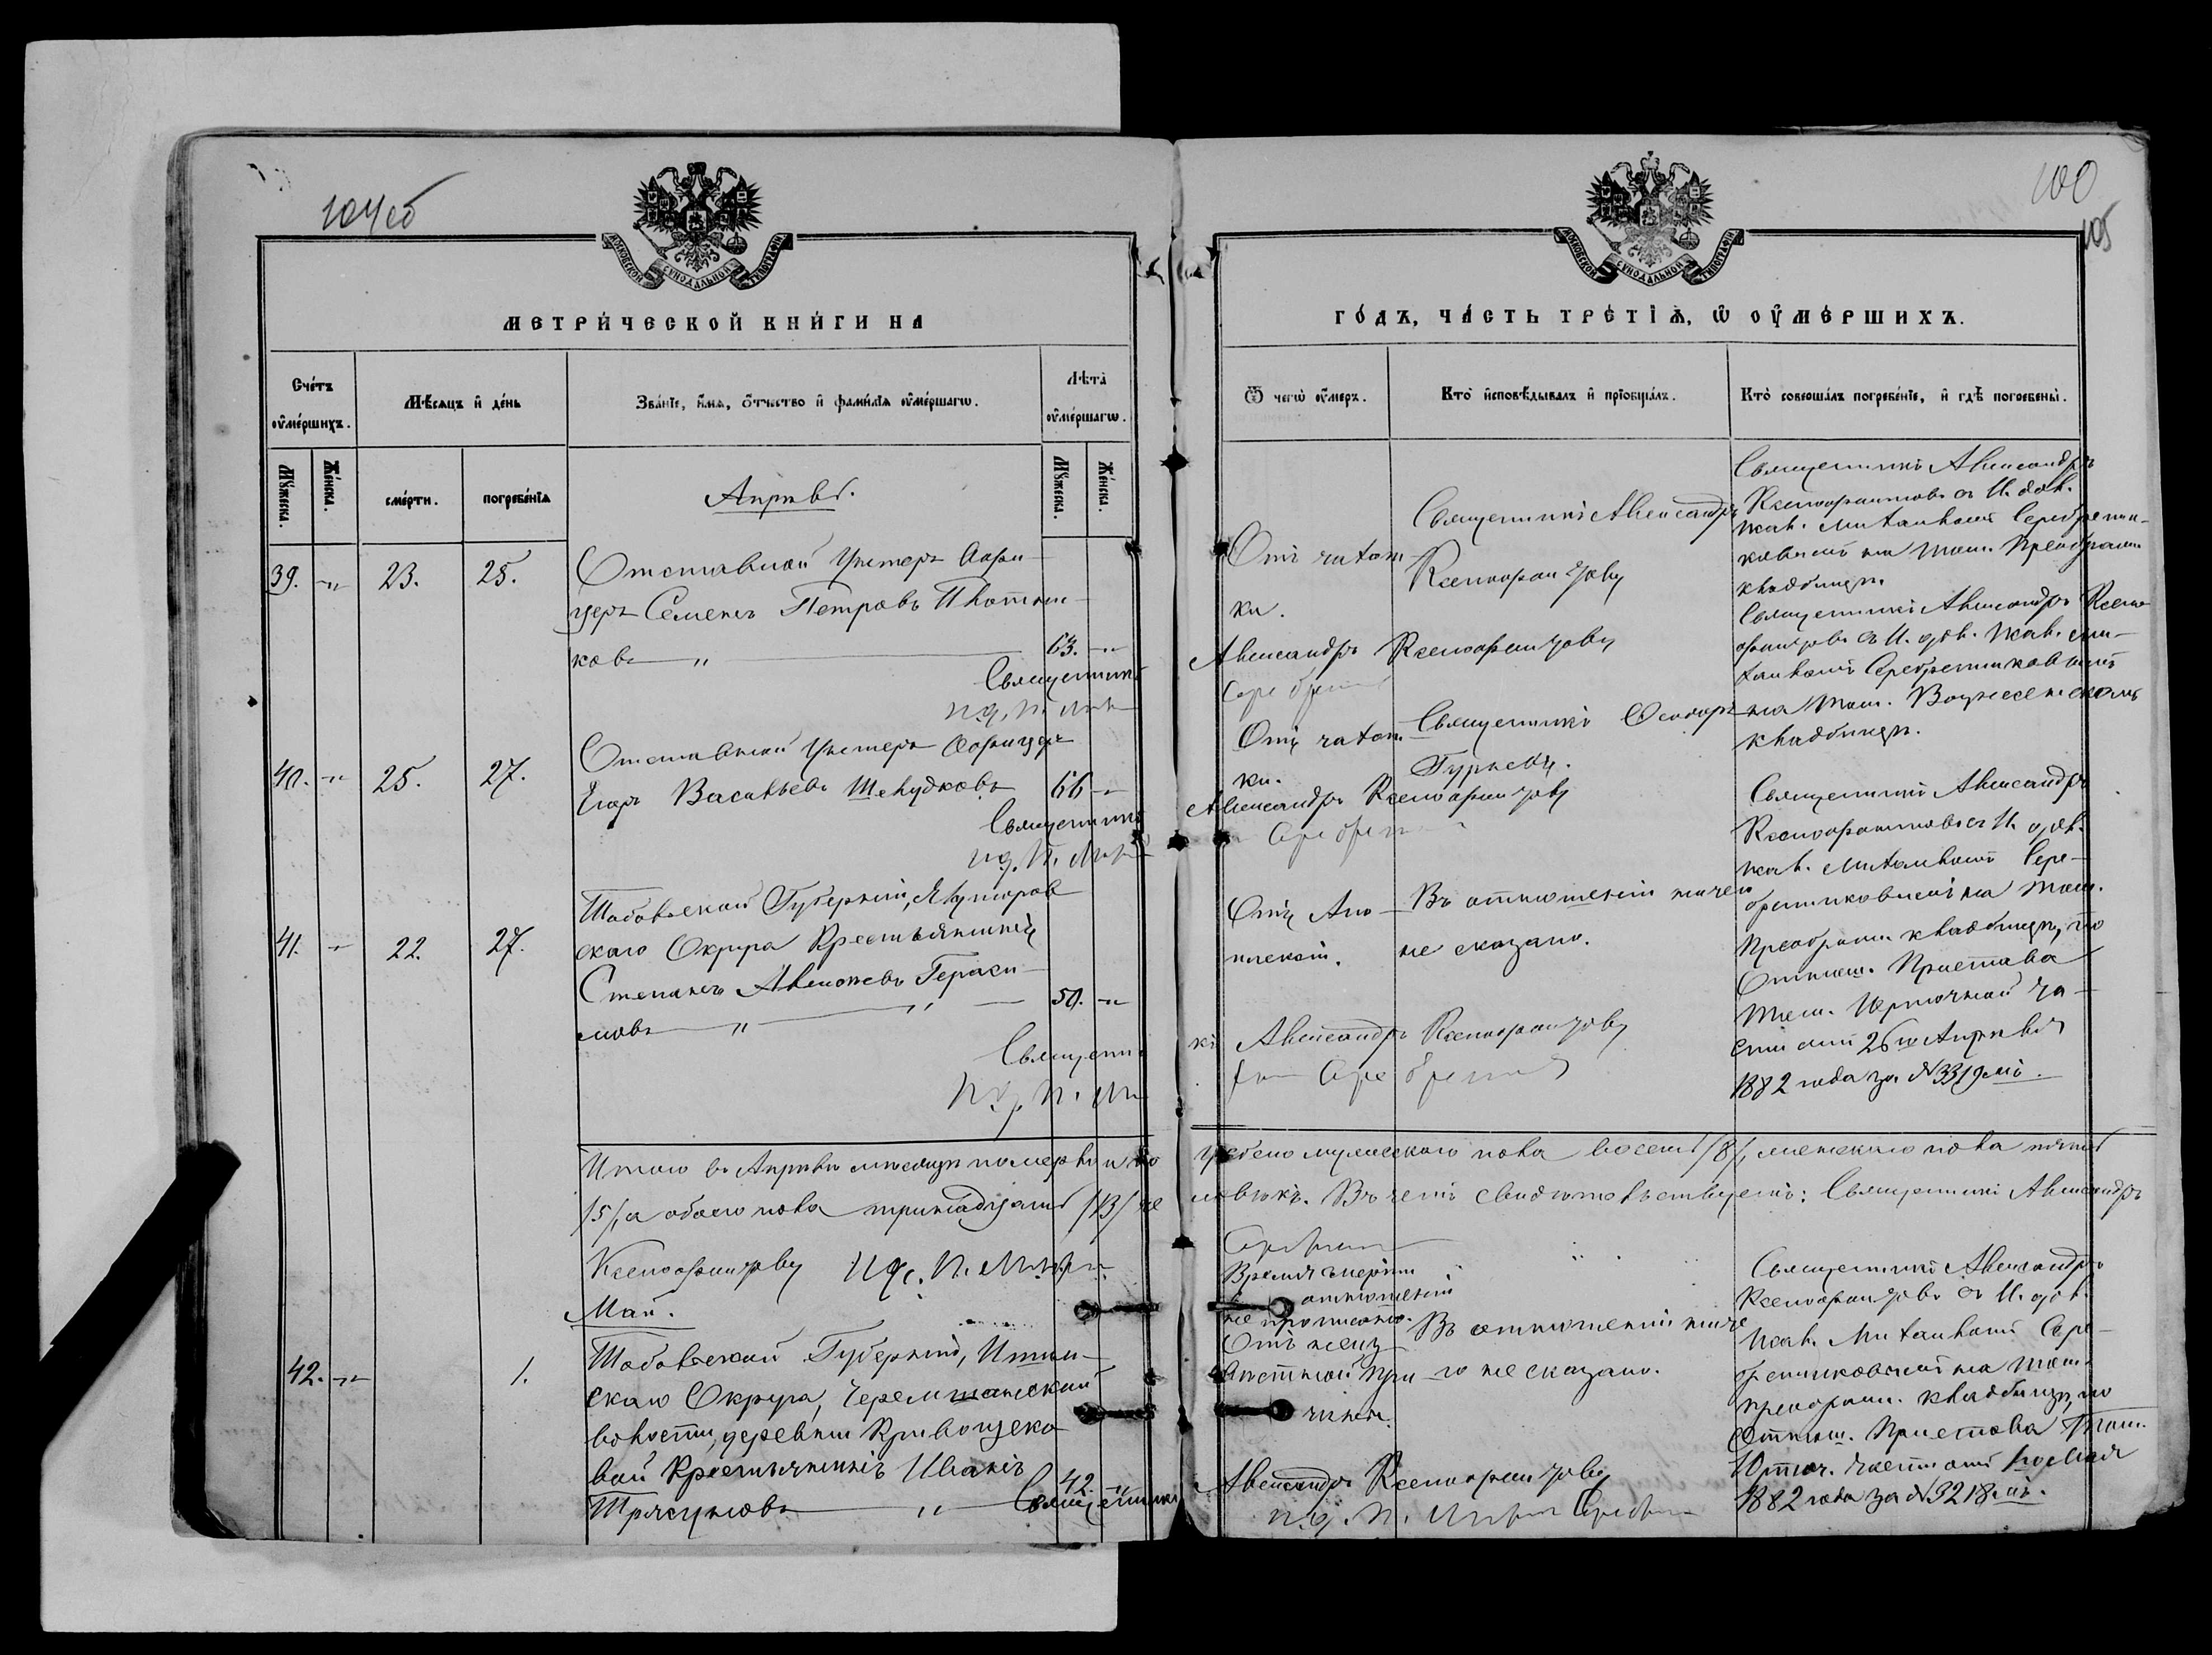 104об
МОСКОВСКОЙ СѴНОДАЛЬНОЙ ТИПОГРАФІИ
МЕТРИ́ЧЕСКОЙ КНИ́ГИ НА
Сче́тъ оу҆ме́ршихъ.
Мꙋ́жеска.
Же́нска.
Мѣ́сяцъ и҆ де́нь
сме́рти.
погребе́нїѧ
Зва́нїе, и҆́мѧ, ѻ҆́тчество и҆ фами́лїѧ оу҆ме́ршагѡ.
Лѣ́та оу҆ме́ршагѡ.
Мꙋ́жеска.
Же́нска.
Апрѣль.
39. -"- 23. 25.
Отставной Унтеръ Офи-
церъ Семенъ Петровъ Плотни-
ковъ — " — 63. -"-
Священникъ
40. -"- 25. 27.
Отставной Унтеръ Офицеръ
Егоръ Васильевъ Шелудковъ 66 -"-
Священникъ
41. -"- 22. 27.
Тобольской Губерніи, Ялуторов
скаго Округа Крестьянинъ
Степанъ Алексѣевъ Гераси-
мовъ — " — " — 50. -"-
Священни
Итого въ Апрѣлѣ мѣсяцѣ померло и по
/5/, а обоего пола тринадцать /13/ че
Ксенофонтовъ
Май.
42. -"- 1.
Тобольской Губерніи, Ишим-
скаго Округа, Черемшанской
волости, деревни Кривощеко
вой Крестьянинъ Иванъ
Трясуновъ — " — 42. -"-
Священникъ
100
105
МОСКОВСКОЙ СѴНОДАЛЬНОЙ ТИПОГРАФІИ
ГО́ДЪ, ЧА́СТЬ ТРЕ́ТІѦ, Ѡ҆ ОУ҆МЕ́РШИХЪ.
Ѿ чегѡ̀ оу҆́меръ.
Кто̀ и҆сповѣ́дывалъ и҆ прїѡбща́лъ.
Кто̀ соверша́лъ погребе́нїе, и҆ гдѣ̀ погребены̀.
Отъ чахот-
ки.
Священникъ Александръ
Ксенофонтовъ
Священникъ Александръ
Ксенофонтовъ съ И. дол.
псал. Митаиломъ Серебренни-
ковымъ на Том. Преображен.
кладбищѣ.
Александръ Ксенофонтовъ
Отъ чахот-
ки.
Священникъ Ѳеодоръ
Гурьевъ.
Священникъ Александръ Ксено
фонтовъ съ И. дол. псал. Ми-
таиломъ Серебренниковымъ
на Том. Вознесенскомъ
кладбищѣ.
Александръ Ксенофонтовъ
Отъ Апо-
плексіи.
Въ отношеніи ничего
не сказано.
Священникъ Александръ
Ксенофонтовъ съ И. дол.
псал. Митаиломъ Сере-
бренниковымъ на Том.
Преображ. кладбищѣ, по
Отнош. Пристава
Том. Юрточной Ча-
сти отъ 26го Апрѣля
1882 года за №3319мъ.
къ Александръ Ксенофонтовъ
гребено мужескаго пола восемь /8/, женскаго пола пять
ловѣкъ. Въ чемъ свидѣтельствуемъ: Священникъ Александръ
Время смерти
отношеніи
не прописано.
Отъ неиз-
вѣстной при-
чины.
Въ отношеніи ниче
го не сказано.
Священникъ Александръ
Ксенофонтовъ съ И. дол.
псал. Митаиломъ Сере-
бренниковымъ на Том.
преображ. кладбищѣ, по
Отнош. Пристава Том.
Юрточ. Части отъ 1го Мая
1882 года за №3218мъ.
Александръ Ксенофонтовъ